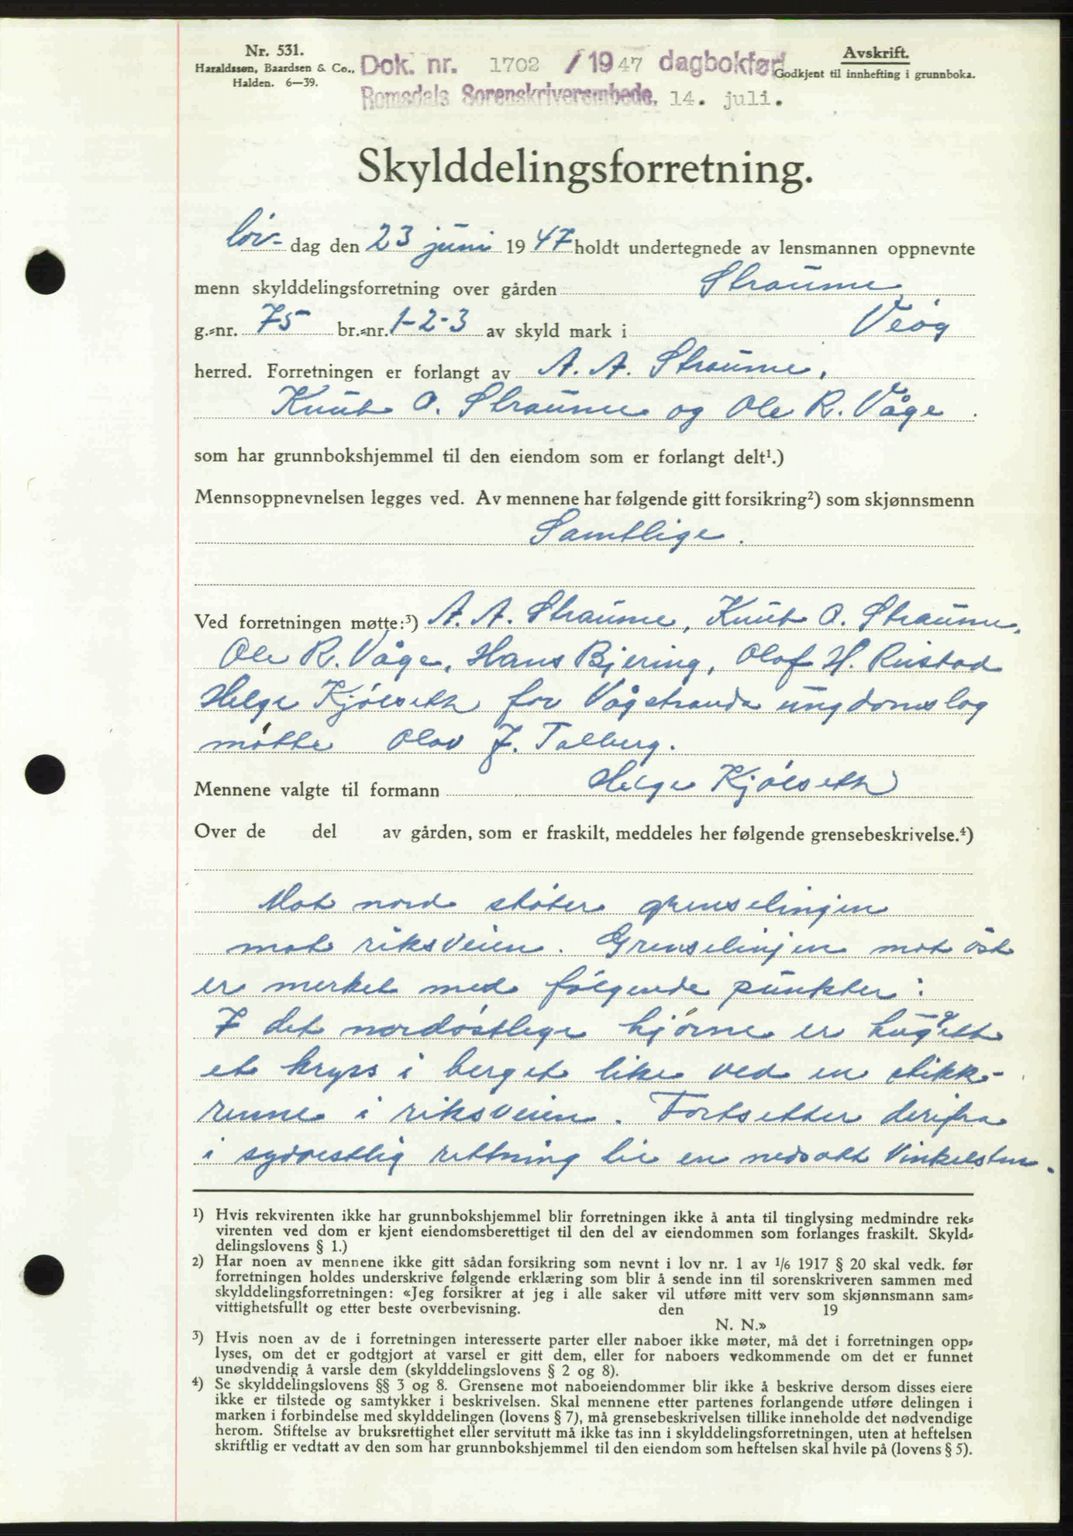 Nr. 531.
Haraldssøn, Baardsen & Co.,
Halden. 6—39.
Dok. nr. 1702 /1947 dagbokført
Romsdals Sorenskriverembede, 14. juli.
Avskrift.
Godkjent til innhefting i grunnboka.
Skylddelingsforretning.
lör- dag den 23 juni 1947 holdt undertegnede av lensmannen oppnevnte
menn skylddelingsforretning over gården Straume
g.=nr. 75 br.=nr. 1-2-3 av skyld mark i Veöy
herred. Forretningen er forlangt av A. A. Straume,
Knut O. Straume og Ole R. Våge.
som har grunnbokshjemmel til den eiendom som er forlangt delt¹.)
Mennsoppnevnelsen legges ved. Av mennene har følgende gitt forsikring²) som skjønnsmenn
Samtlige.
Ved forretningen møtte:³) A. A. Straume, Knut O. Straume,
Ole R. Våge, Hans Bjering, Olaf H. Rustad
Helge Kjölseth for Vågstranda ungdomslag
møtte Olav J. Talberg.
Mennene valgte til formann Helge Kjölseth
Over de del av gården, som er fraskilt, meddeles her følgende grensebeskrivelse.⁴)
Mot nord støter grenselinjen
mot riksveien. Grenselinjen mot öst
er merket med fölgende punkter:
I det nordöstlige hjörne er hugget
et kryss i berget like ved en stikk-
renne i riksveien. Fortsetter derifra
i sydvestlig rettning til en nedsatt Vinkelsten.
¹) Hvis rekvirenten ikke har grunnbokshjemmel blir forretningen ikke å anta til tinglysing medmindre rek=
virenten ved dom er kjent eiendomsberettiget til den del av eiendommen som forlanges fraskilt. Skyld=
delingslovens § 1.)
²) Har noen av mennene ikke gitt sådan forsikring som nevnt i lov nr. 1 av ¹/₆ 1917 § 20 skal vedk. før
forretningen holdes underskrive følgende erklæring som blir å sende inn til sorenskriveren sammen med
skylddelingsforretningen: «Jeg forsikrer at jeg i alle saker vil utføre mitt verv som skjønnsmann sam=
vittighetsfullt og etter beste overbevisning. den 19
N. N.»
³) Hvis noen av de i forretningen interesserte parter eller naboer ikke møter, må det i forretningen opp=
lyses, om det er godtgjort at varsel er gitt dem, eller for naboers vedkommende om det er funnet
unødvendig å varsle dem (skylddelingslovens § 2 og 8).
⁴) Se skylddelingslovens §§ 3 og 8. Grensene mot naboeiendommer blir ikke å beskrive dersom disses eiere
ikke er tilstede og samtykker i beskrivelsen. Skal mennene etter partenes forlangende utføre delingen i
marken i forbindelse med skylddelingen (lovens § 7), må grensebeskrivelsen tillike inneholde det nødvendige
herom. Stiftelse av bruksrettighet eller servitutt må ikke tas inn i skylddelingsforretningen, uten at heftelsen
skriftlig er vedtatt av den som har grunnbokshjemmel til den eiendom som heftelsen skal hvile på (lovens § 5).